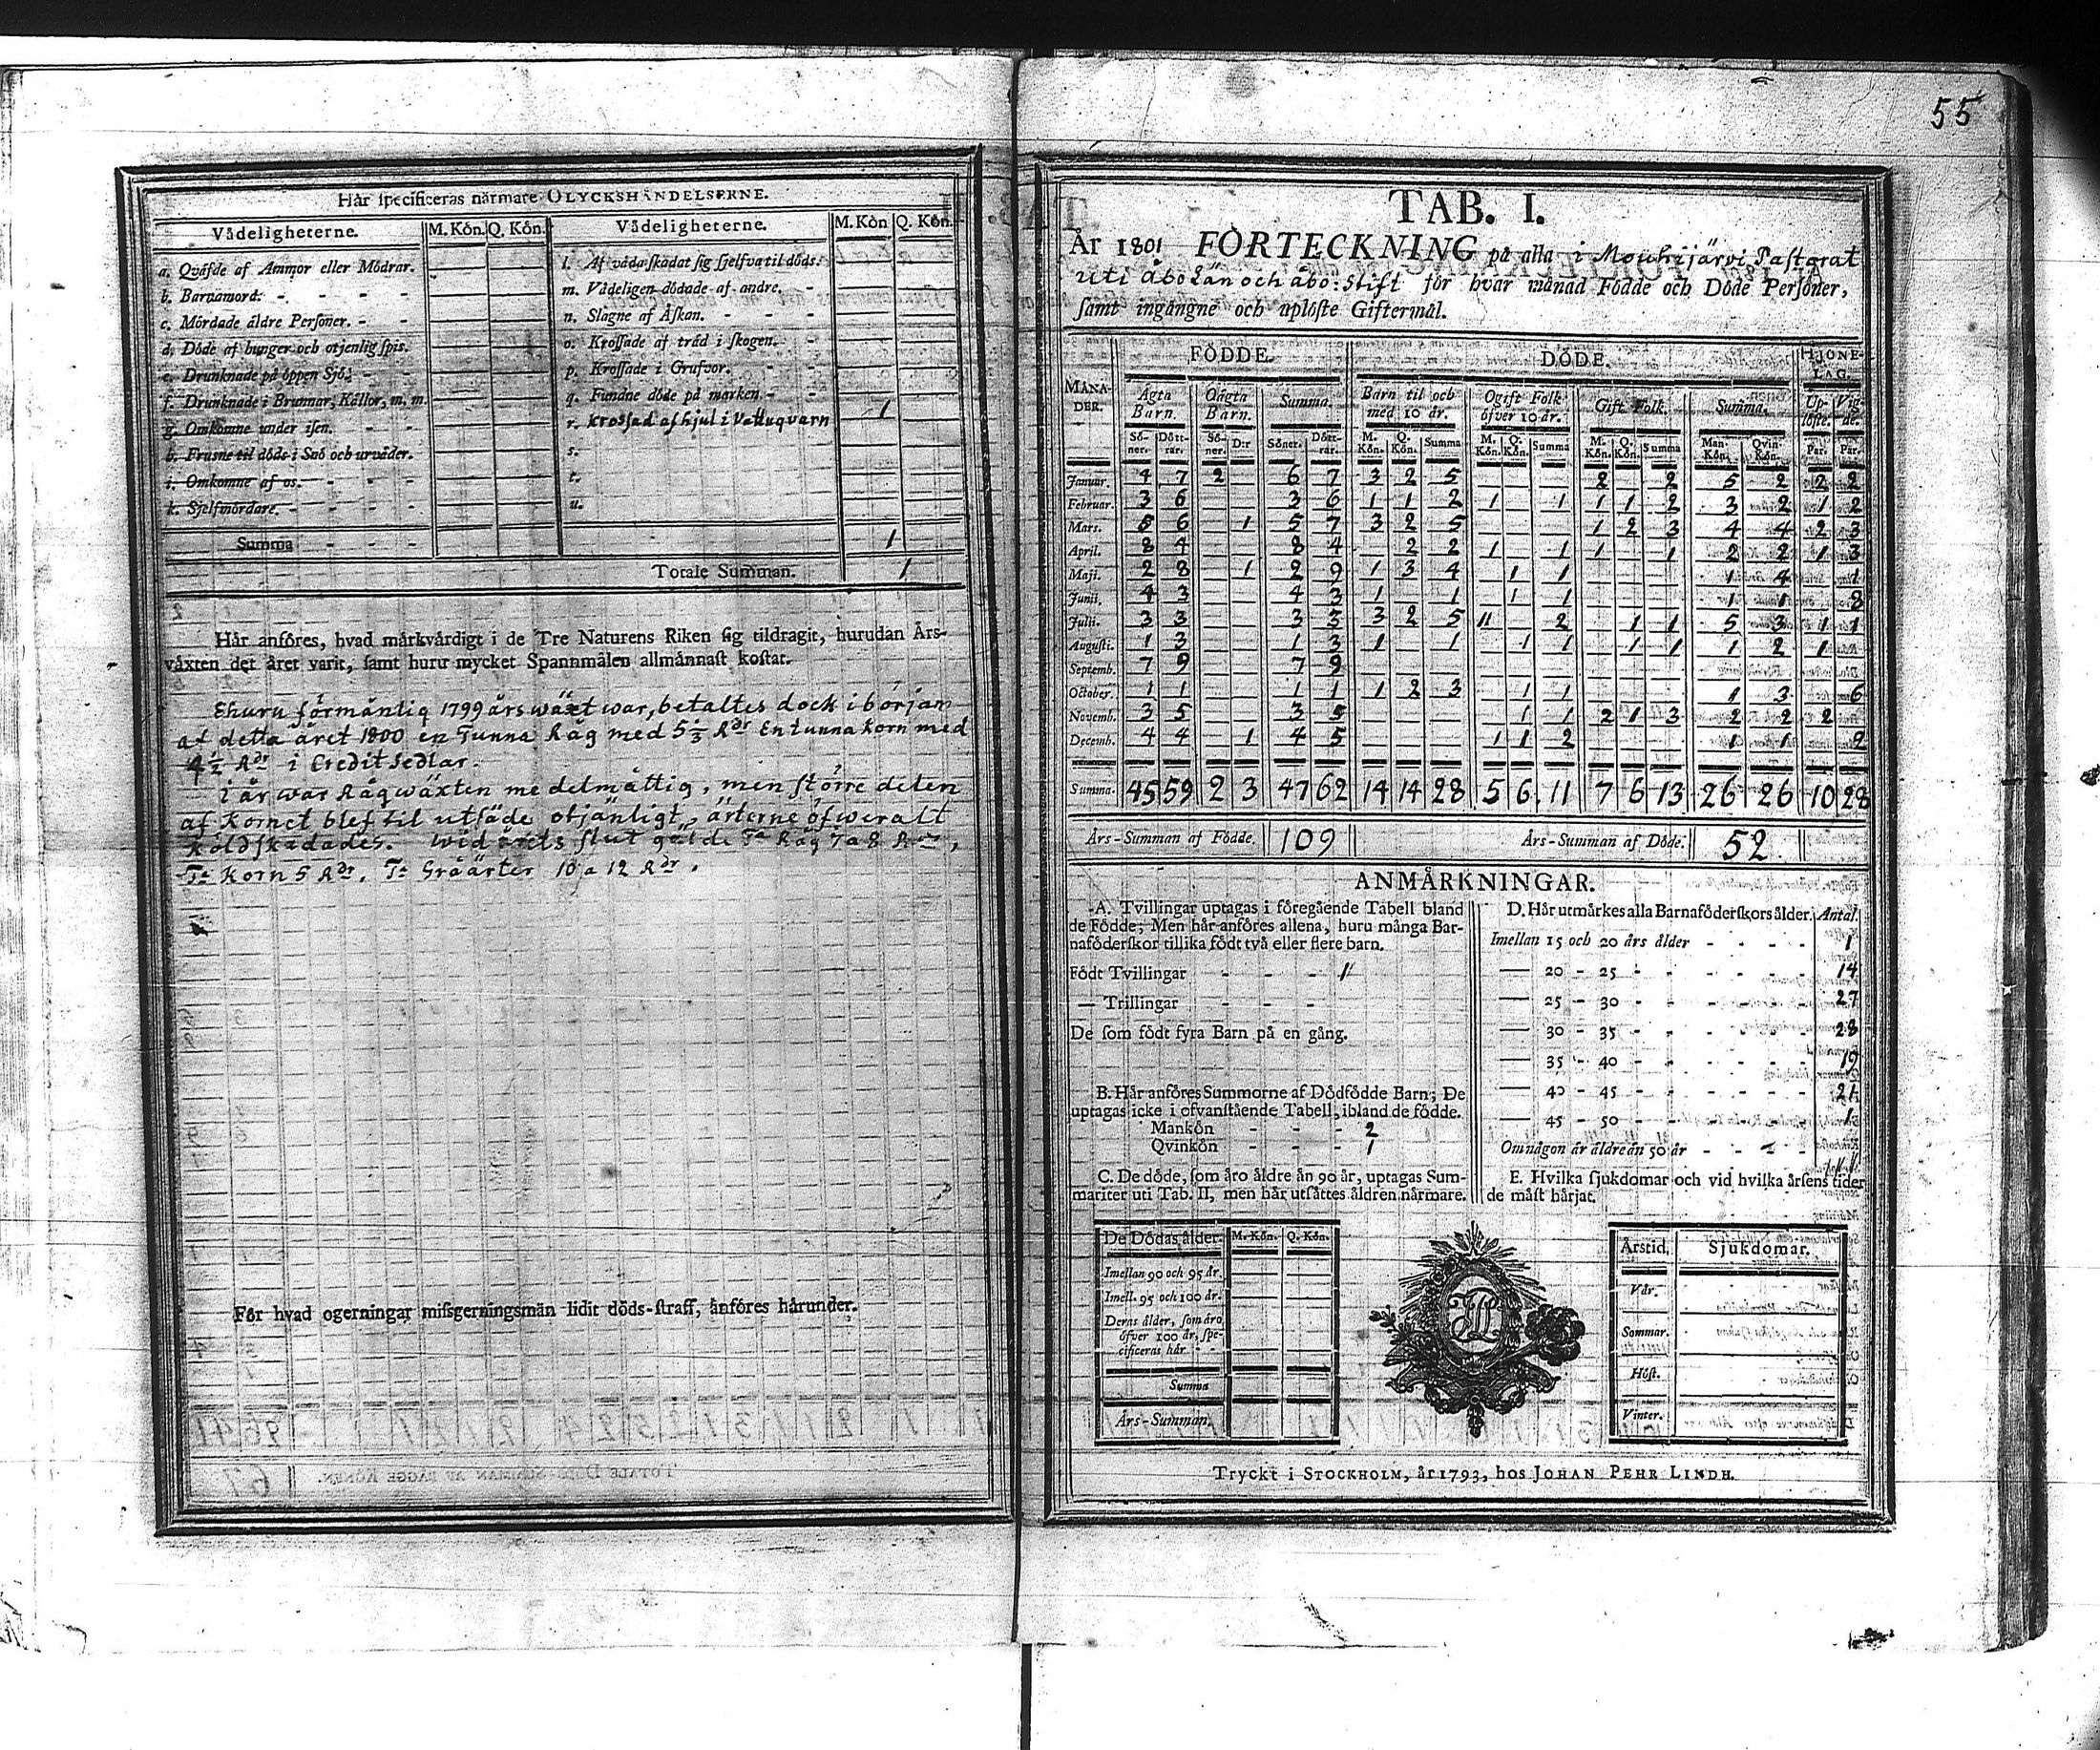 55
Här specificeras närmare OLYCKSHÄNDELSERNE.
Vådeligheterne. M. Kön. Q. Kön. Vådeligheterne. M. Kön Q. Kön.
a. Qväfde af Ammor eller Mödrar. l. Af våda skadat sig sjelfva til döds.
b. Barnamord. m. Vådeligen dödade af andre.
c. Mördade äldre Personer. n. Slagne af Åskan.
d. Döde af hunger och otjenlig spis. o. Krossade af träd i skogen.
e. Drunknade på öppen Sjö. p. Krossade i Grufvor.
f. Drunknade i Brunnar, Källor, m. m. q. Fundne döde på marken.
g. Omkomne under isen. r. krossad af hjul i Vattuqvarn 1
h. Frusne til döds i Snö och urväder. s.
i. Omkomne af os. t.
k. Sjelfmördare. u.
Summa 1
Totale Summan. 1
Här anföres, hvad märkvärdigt i de Tre Naturens Riken sig tildragit, hurudan Års-
växten det året varit, samt huru mycket Spannmålen allmännast kostat.
Ehuru förmånlig 1799 års wäxt war, betaltes dock i början
af detta året 1800 en Tunna Råg med 5 1/3 Rdr En tunna korn med
4 1/2 Rdr i Credit Sedlar.
i år war Rågwäxten medelmåttig, men större delen
af Kornet blef til utsäde otjänligt, ärterne öfweralt
köldskadades. wid årets slut galde Ta Råg 7 a 8 Rdr,
Ta Korn 5 Rdr. Ta Gråärter 10 a 12 Rdr.
För hvad ogerningar missgerningsmän lidit döds-straff, anföres härunder.
TAB. I.
År 1801 FÖRTECKNING på alla i Mouhijärvi Pastorat
uti Åbo Län och åbo: Stift för hvar månad Födde och Döde Personer,
samt ingångne och uplöste Giftermål.
FÖDDE. DÖDE. HJONE-LAG.
MÅNA-DER. Ägta Barn. Oägta Barn. Summa. Barn til och med 10 år. Ogift Folk öfver 10 år. Gift Folk. Summa. Up-löste. Vig-de.
Sö-ner. Dött-rar. Sö-ner. D:r Söner. Dött-rar. M. Kön. Q. Kön. Summa M. Kön. Q. Kön. Summa M. Kön. Q. Kön. Summa Man-Kön. Qvin-Kön. Par. Par.
Januar. 4 7 2 6 7 3 2 5 2 2 5 2 2 2
Februar. 3 6 3 6 1 1 2 1 1 1 1 2 3 2 1 2
Mars. 5 6 1 5 7 3 2 5 1 2 3 4 4 2 3
April. 8 4 8 4 2 2 1 1 1 1 2 2 1 3
Maji. 2 8 1 2 9 1 3 4 1 1 1 4 1
Junii. 4 3 4 3 1 1 1 1 1 1 8
Julii. 3 3 3 3 3 2 5 11 2 1 1 5 3 1 1
Augusti. 1 3 1 3 1 1 1 1 1 1 1 2 1
Septemb. 7 9 7 9
October. 1 1 1 1 1 2 3 1 1 1 3 6
Novemb. 3 5 3 5 1 1 2 1 3 2 2 2
Decemb. 4 4 1 4 5 1 1 2 1 1 2
Summa. 45 59 2 3 47 62 14 14 28 5 6 11 7 6 13 26 26 10 28
Års-Summan af Födde. 109 Års-Summan af Döde. 52
ANMÄRKNINGAR.
A. Tvillingar uptagas i föregående Tabell bland
de Födde; Men här anföres allena, huru många Bar-
naföderskor tillika födt två eller flere barn.
Födt Tvillingar 1
— Trillingar
De som födt fyra Barn på en gång.
B. Här anföres Summorne af Dödfödde Barn; De
uptagas icke i ofvanstående Tabell, ibland de födde.
Mankön 2
Qvinkön 1
C. De döde, som äro äldre än 90 år, uptagas Sum-
mariter uti Tab. II, men här utsättes åldren närmare.
D. Här utmärkes alla Barnaföderskors ålder. Antal.
Imellan 15 och 20 års ålder 1
— 20 - 25 14
— 25 - 30 27
— 30 - 35 28
— 35 - 40 19
— 40 - 45 21
— 45 - 50 1
Om någon är äldre än 50 år -
111
E. Hvilka sjukdomar och vid hvilka årsens tider
de mäst härjat.
De Dödas ålder. M. Kön. Q. Kön.
Imellan 90 och 95 år.
Imell. 95 och 100 år.
Deras ålder, som äro
öfver 100 år, spe-
cificeras här
Summa
Års-Summan.
Årstid. Sjukdomar.
Vår.
Sommar.
Höst.
Vinter.
Tryckt i STOCKHOLM, år 1793, hos JOHAN PEHR LINDH.